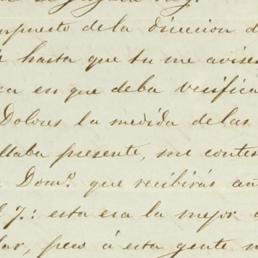 mpuesto de la direccion d
hasta que tu me avises
ca en que deba verifica
Dolores la medida de las
ltaba presente, me contes
Domº. que recibirás an
7: esta era la mejor
lar, pero á esta gente n